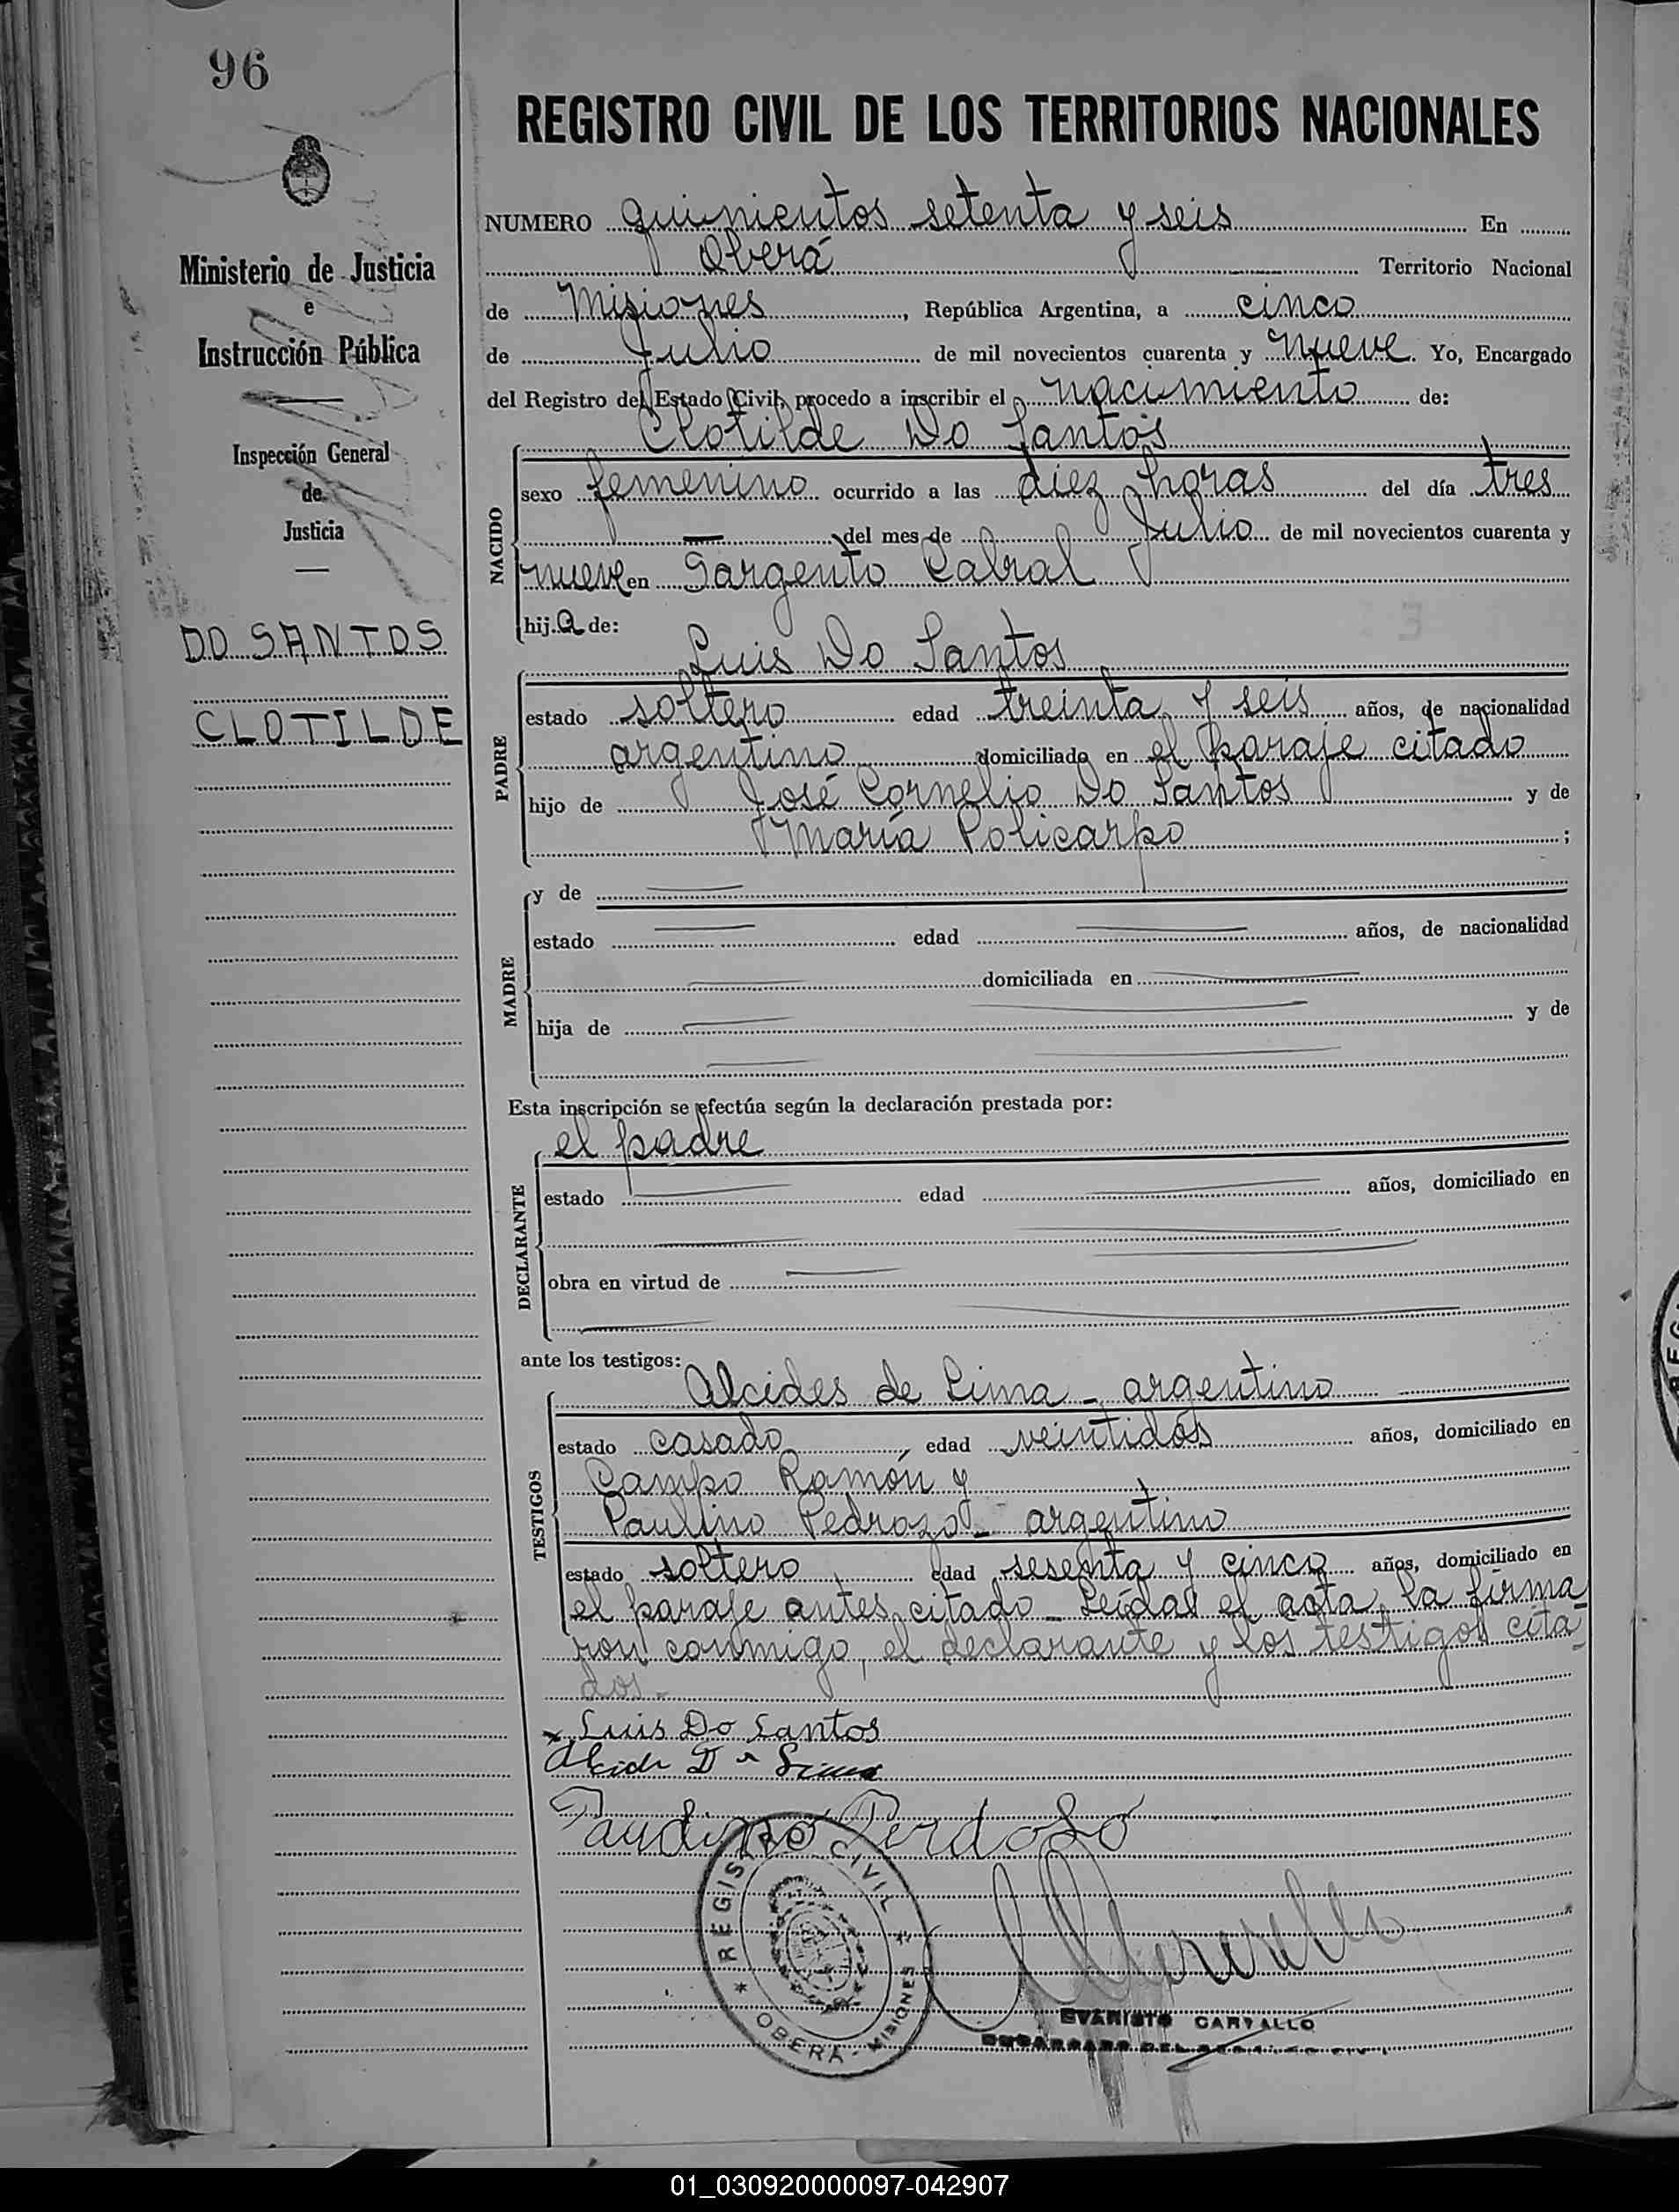 96
REGISTRO CIVIL DE LOS TERRITORIOS NACIONALES
Ministerio de Justicia
e
Instrucción Pública
Inspección General
de
Justicia
DO SANTOS
CLOTILDE
NUMERO quinientos setenta y seis En
Oberá Territorio Nacional
de Misiones, República Argentina, a cinco
de Julio de mil novecientos cuarenta y nueve. Yo, Encargado
del Registro del Estado Civil, procedo a inscribir el nacimiento de:
Clotilde Do Santos
NACIDO
sexo femenino ocurrido a las diez horas del día tres
del mes de Julio de mil novecientos cuarenta y
nueve en Sargento Cabral
hija de:
Luis Do Santos
PADRE
estado soltero edad treinta y seis años, de nacionalidad
argentino domiciliado en el paraje citado
hijo de José Cornelio Do Santos y de
María Policarpo ;
MADRE
y de
estado edad años, de nacionalidad
domiciliada en
hija de y de
Esta inscripción se efectúa según la declaración prestada por:
el padre
DECLARANTE
estado edad años, domiciliado en
obra en virtud de
ante los testigos:
Alcides de Lima - argentino
TESTIGOS
estado casado, edad veintidós años, domiciliado en
Campo Ramón y
Paulino Pedrozo - argentino
estado soltero edad sesenta y cinco años, domiciliado en
el paraje antes citado - Leída el acta, la firma
ron conmigo, el declarante y los testigos cita-
dos.-
x Luis Do Santos
REGISTRO CIVIL
OBERÁ - MISIONES
EVARISTO CARVALLO
ENCARGADO DEL REGISTRO CIVIL
01_030920000097-042907